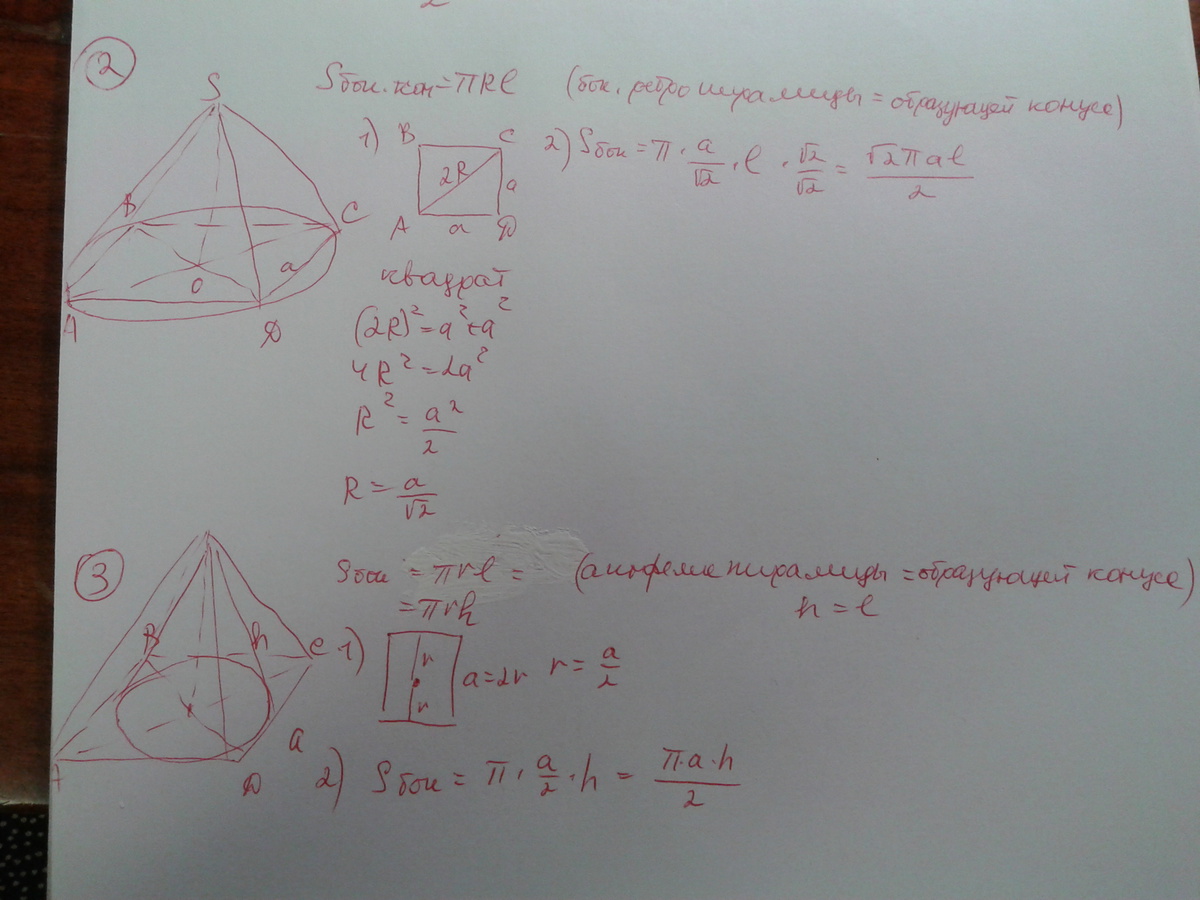 2
②
S
B
C
a
O
A
D
Sбок.кон=πRl (бок. ребро пирамиды = образующей конуса)
1) B C
2R
a
A a D
2) Sбок = π · a/√2 · l · √2/√2 = √2πal/2
квадрат
(2R)² = a² + a²
4R² = 2a²
R² = a²/2
R = a/√2
③
B
h
C
A
D
a
Sбок = πrl = (апофема пирамиды = образующей конуса)
= πrh h = l
1) r
r
a=2r r = a/2
2) Sбок = π · a/2 · h = π·a·h/2